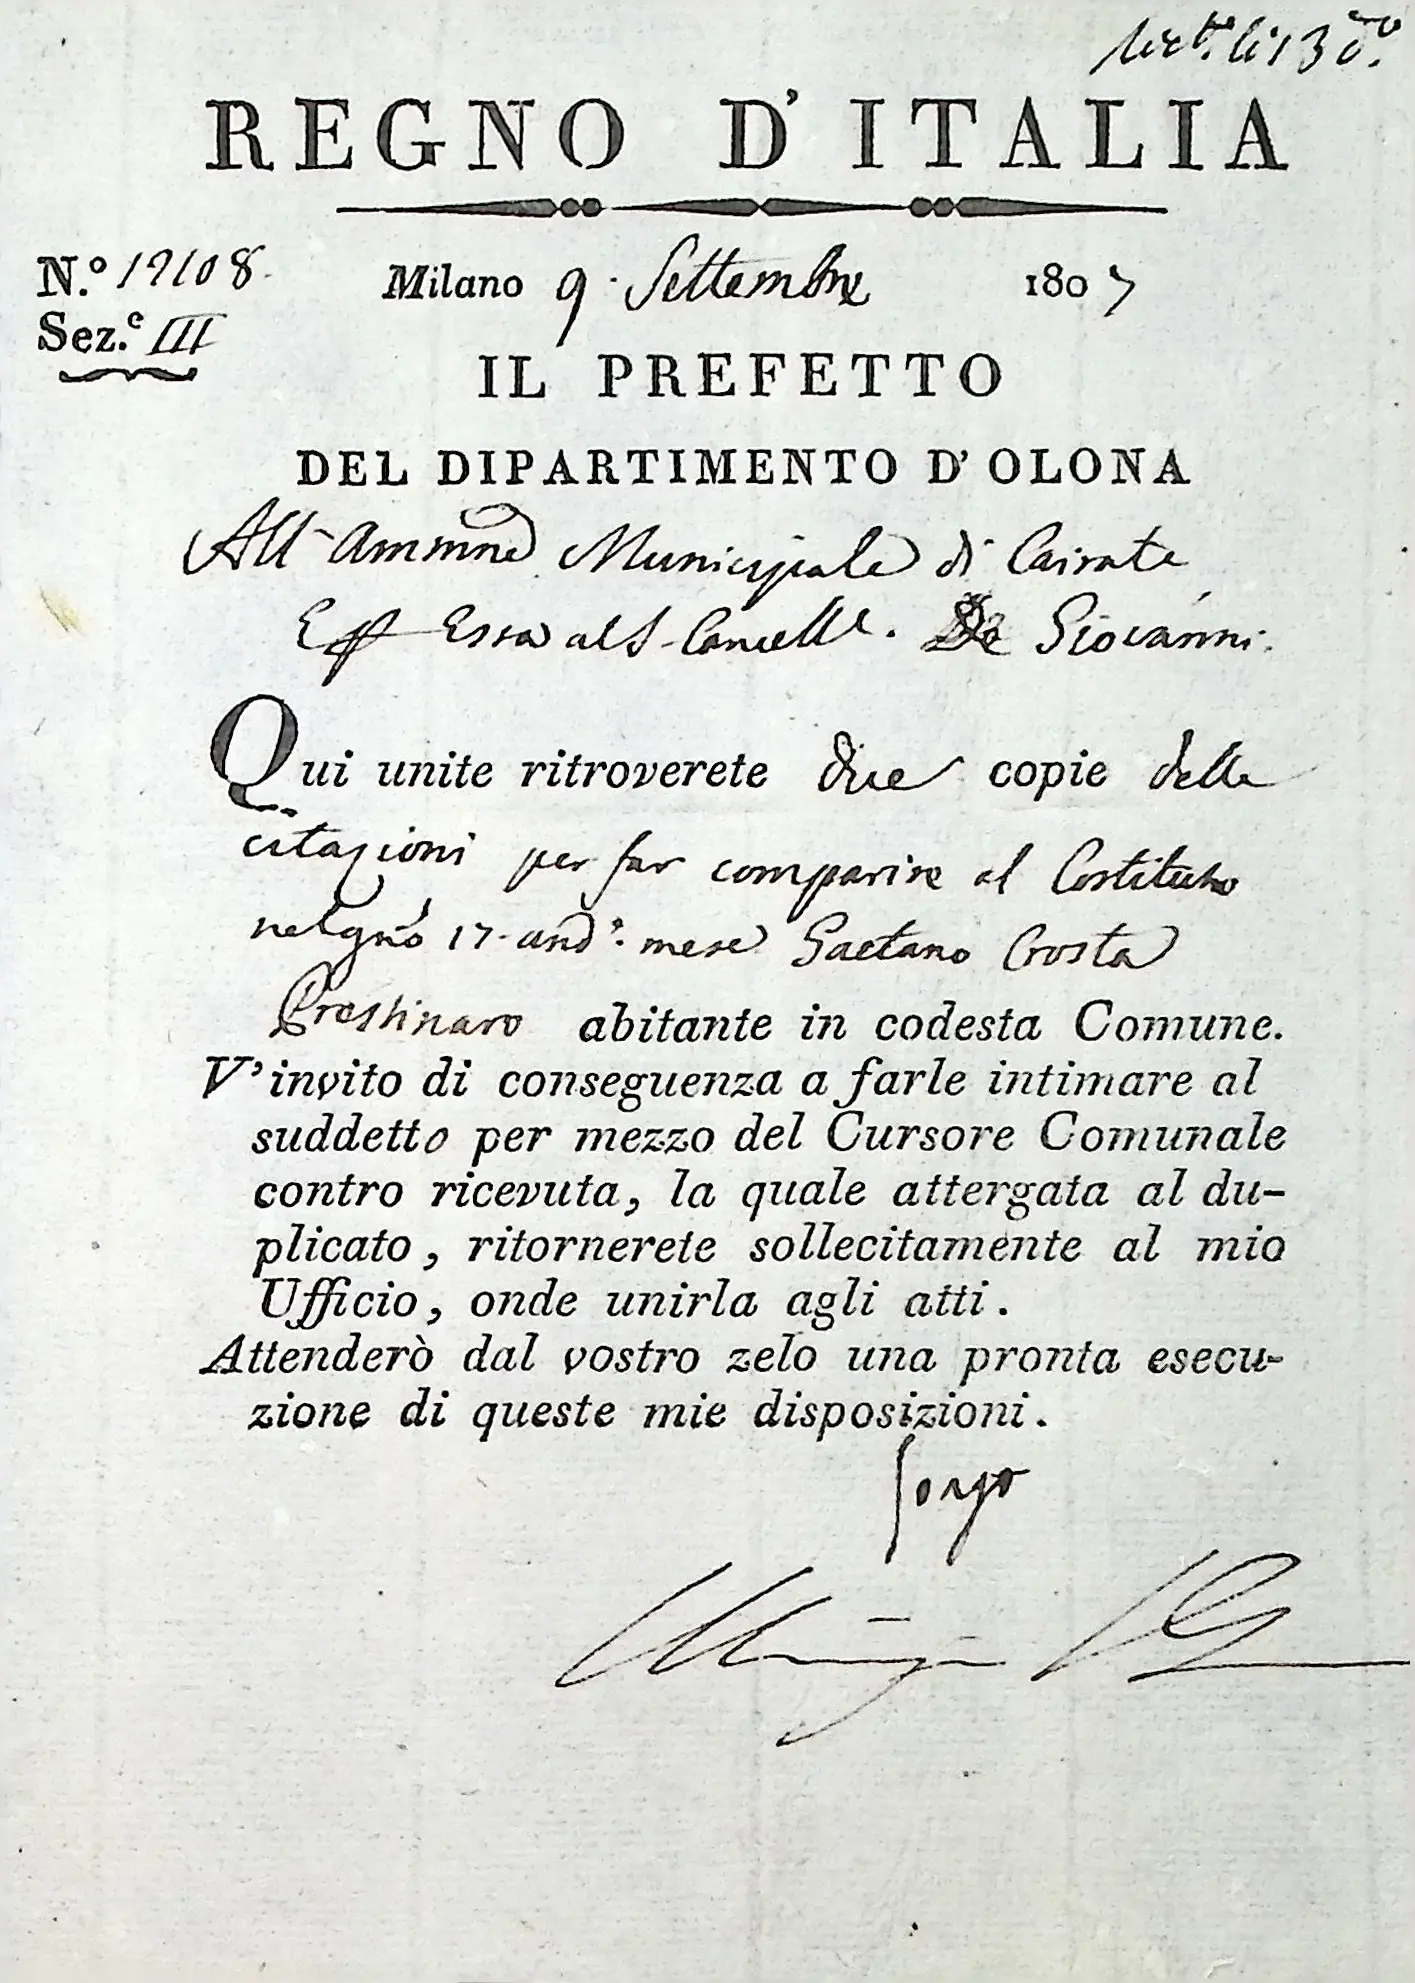 li 13
REGNO D'ITALIA
N.º 19108.
Milano 9. Settembre 1807
Sez.e III
IL PREFETTO
DEL DIPARTIMENTO D'OLONA
All' Ammne Municipale di Cairate
Essa al S. Cancelle. De Giovanni.
Qui unite ritroverete due copie delle
citazioni per far comparire al Costituto
nel gno 17. and.º mese Gaetano Crosta
Prestinaro abitante in codesta Comune.
V'invito di conseguenza a farle intimare al
suddetto per mezzo del Cursore Comunale
contro ricevuta, la quale attergata al du-
plicato, ritornerete sollecitamente al mio
Ufficio, onde unirla agli atti.
Attenderò dal vostro zelo una pronta esecu-
zione di queste mie disposizioni.